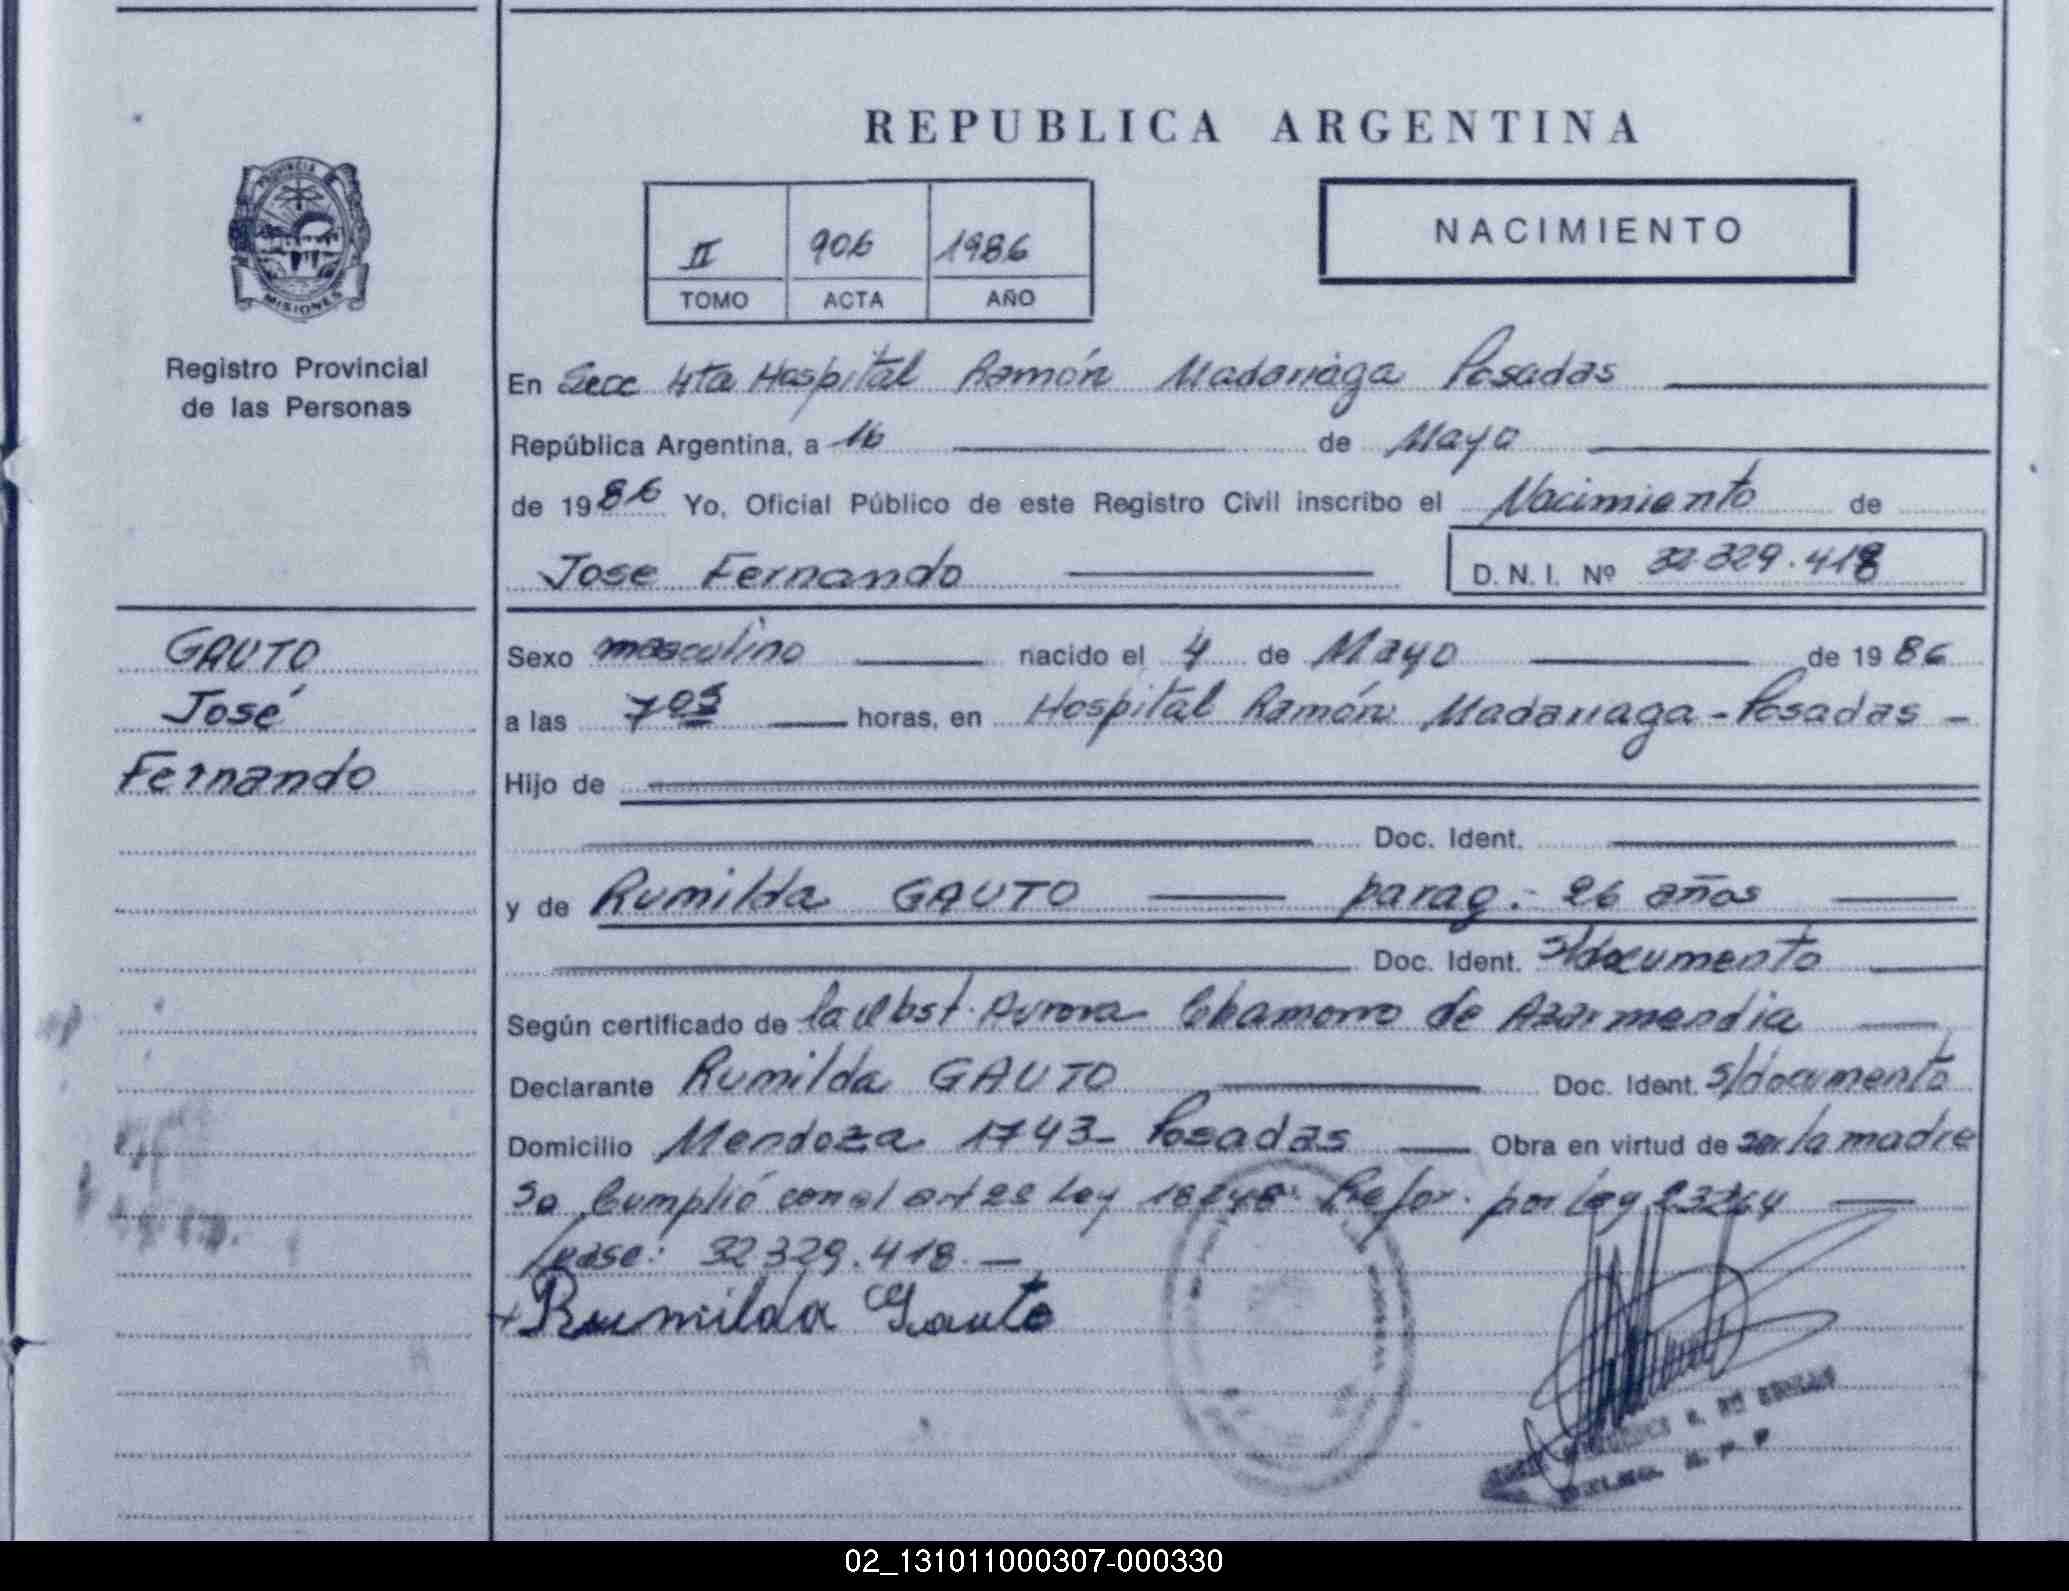 REPUBLICA ARGENTINA
PROVINCIA DE
MISIONES
Registro Provincial
de las Personas
II 906 1986
TOMO ACTA AÑO
NACIMIENTO
En Secc 4ta Hospital Ramón Madariaga Posadas
República Argentina, a 16 de Mayo
de 1986 Yo, Oficial Público de este Registro Civil inscribo el Nacimiento de
Jose Fernando D. N. I. Nº 32.329.418
GAUTO
José
Fernando
Sexo masculino nacido el 4 de Mayo de 1986
a las 7 05 horas, en Hospital Ramón Madariaga - Posadas -
Hijo de
Doc. Ident.
y de Rumilda GAUTO parag: 26 años
Doc. Ident. s/documento
Según certificado de la Obst. Aurora Chamorro de Azarmendia
Declarante Rumilda GAUTO Doc. Ident. s/documento
Domicilio Mendoza 1743- Posadas Obra en virtud de ser la madre
Se Cumplió con el art 2º Ley 18248 Refor. por Ley 23264
/ease: 32329.418.-
+ Rumilda Gauto
02_131011000307-000330